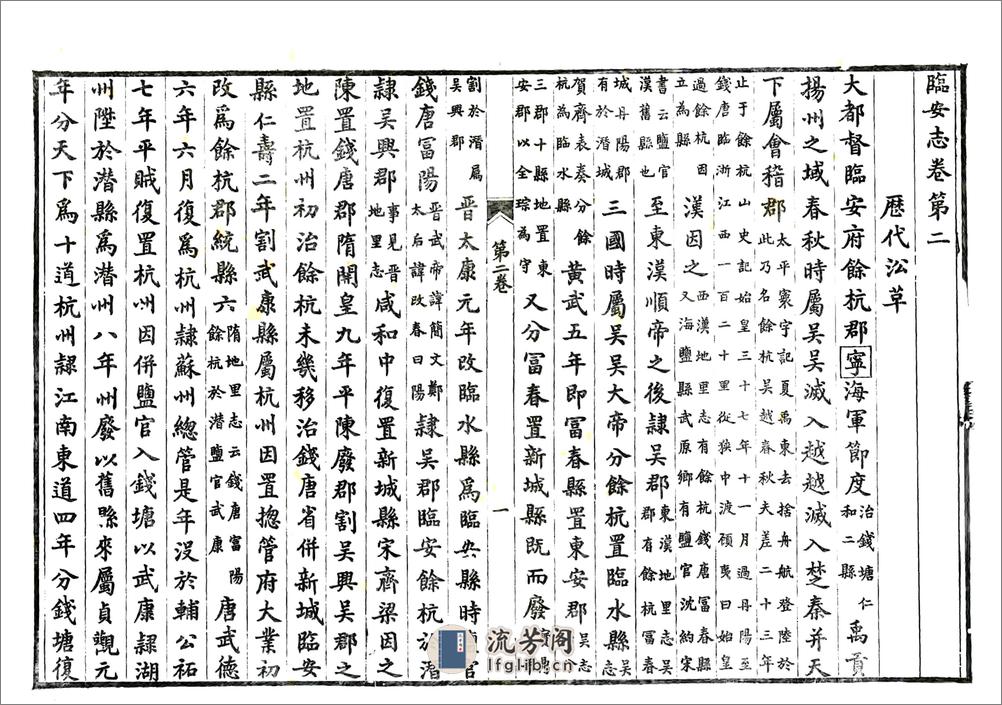 臨安志卷第二
歴代沿革
大都督臨安府餘杭郡寧海軍節度治錢塘仁和二縣禹貢
揚州之域春秋時屬吳吳滅入越越滅入楚秦并天
下屬會稽郡太平寰宇記夏禹東去捨舟航登陸於此乃名餘杭吳越春秋夫差二十三年
止于餘杭山史記始皇三十七年十一月過丹陽至錢唐臨浙江西一百二十里從狹中波顧夷曰始皇
過餘杭因立為縣漢因之西漢地里志有餘杭錢唐冨春縣又海鹽縣武原鄉有鹽官沈約宋
書云鹽官漢舊縣也至東漢順帝之後隸吳郡東漢地里志吳郡有餘杭冨春
城丹陽郡有於潛城三國時屬吳吳大帝分餘杭置臨水縣吳志
賀齊表奏分餘杭為臨水縣黃武五年即冨春縣置東安郡吳志
三郡十縣地置東安郡以全琮為守又分冨春置新城縣既而廢
第二卷
一
割於潛屬吳興郡晋太康元年改臨水縣爲臨安縣時官
錢唐冨陽晋武帝諱簡文鄭太后諱改春曰陽隸吳郡臨安餘杭於潛
隸吳興郡事見晋地里志咸和中復置新城縣宋齊梁因之
陳置錢唐郡隋開皇九年平陳廢郡割吳興吳郡之
地置杭州初治餘杭未幾移治錢唐省併新城臨安
縣仁壽二年割武康縣屬杭州因置揔管府大業初
改爲餘杭郡統縣六隋地里志云錢唐富陽餘杭於潛鹽官武康唐武德
六年六月復爲杭州隸蘇州總管是年没於輔公祏
七年平賊復置杭州因併鹽官入錢塘以武康隸湖
州陞於潛縣爲潛州八年州廢以舊縣來屬貞觀元
年分天下爲十道杭州隸江南東道四年分錢塘復
流芳阁
lfglib.cn